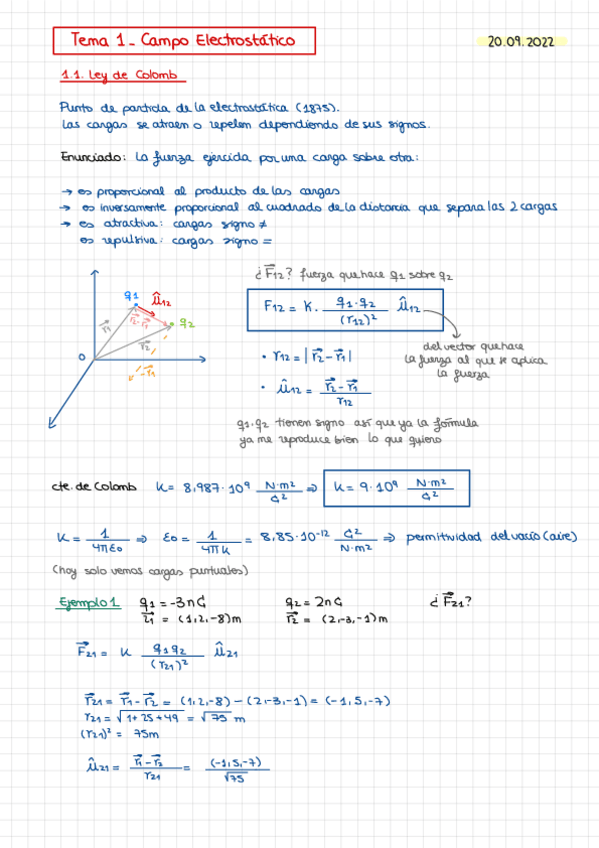 Tema 1_ Campo Electrostático
20.09.2022
1.1. Ley de Colomb
Punto de partida de la electrostática (1875).
Las cargas se atraen o repelen dependiendo de sus signos.
Enunciado: La fuerza ejercida por una carga sobre otra:
→ es proporcional al producto de las cargas
→ es inversamente proporcional al cuadrado de la distancia que separa las 2 cargas
→ es atractiva: cargas signo ≠
es repulsiva: cargas signo =
¿F⃗12? fuerza que hace q1 sobre q2
q1 û12
r⃗2-r⃗1 q2
r⃗1
r⃗2
0
-r⃗1
F12 = K · q1·q2 / (r12)² û12
• r12 = |r⃗2-r⃗1|
• û12 = r⃗2-r⃗1 / r12
del vector que hace
la fuerza al que se aplica
la fuerza
q1·q2 tienen signo así que ya la fórmula
ya me reproduce bien lo que quiero
cte. de Colomb K = 8,987·10⁹ N·m²/C² ⇒ K = 9·10⁹ N·m²/C²
K = 1/4πε0 ⇒ ε0 = 1/4πK = 8,85·10⁻¹² C²/N·m² ⇒ permitividad del vacío (aire)
(hoy solo vemos cargas puntuales)
Ejemplo 1 q1 = -3nC q2 = 2nC ¿F⃗21?
r⃗1 = (1,2,-8)m r⃗2 = (2,-3,-1)m
F⃗21 = K q1q2 / (r21)² û21
r⃗21 = r⃗1 - r⃗2 = (1,2,-8) - (2,-3,-1) = (-1,5,-7)
r21 = √1+25+49 = √75 m
(r21)² = 75m
û21 = r⃗1-r⃗2 / r21 = (-1,5,-7) / √75